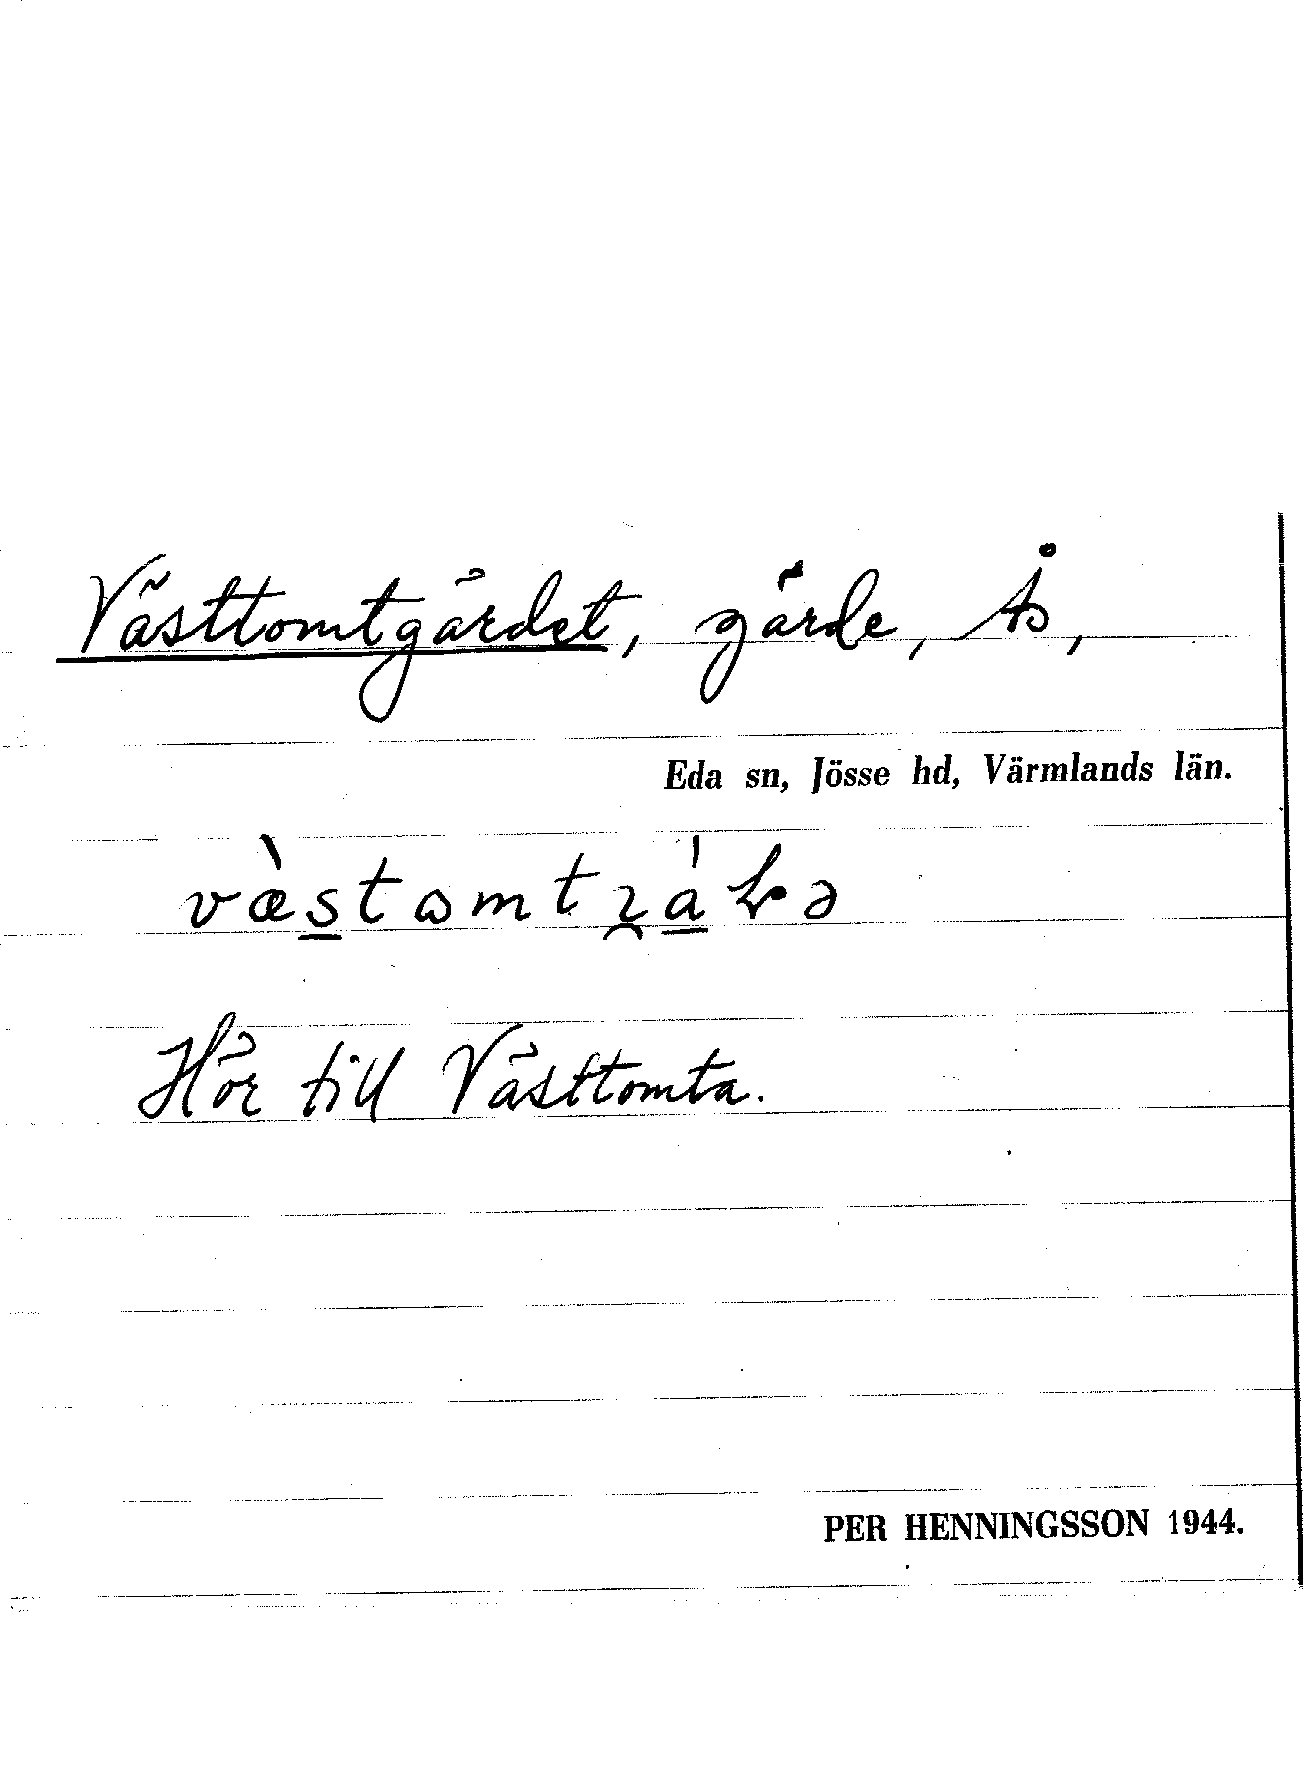 Västtomtgärdet, gärde, Ås,
Eda sn, Jösse hd, Värmlands län.
Hör till Västtomta.
PER HENNINGSSON 1944.